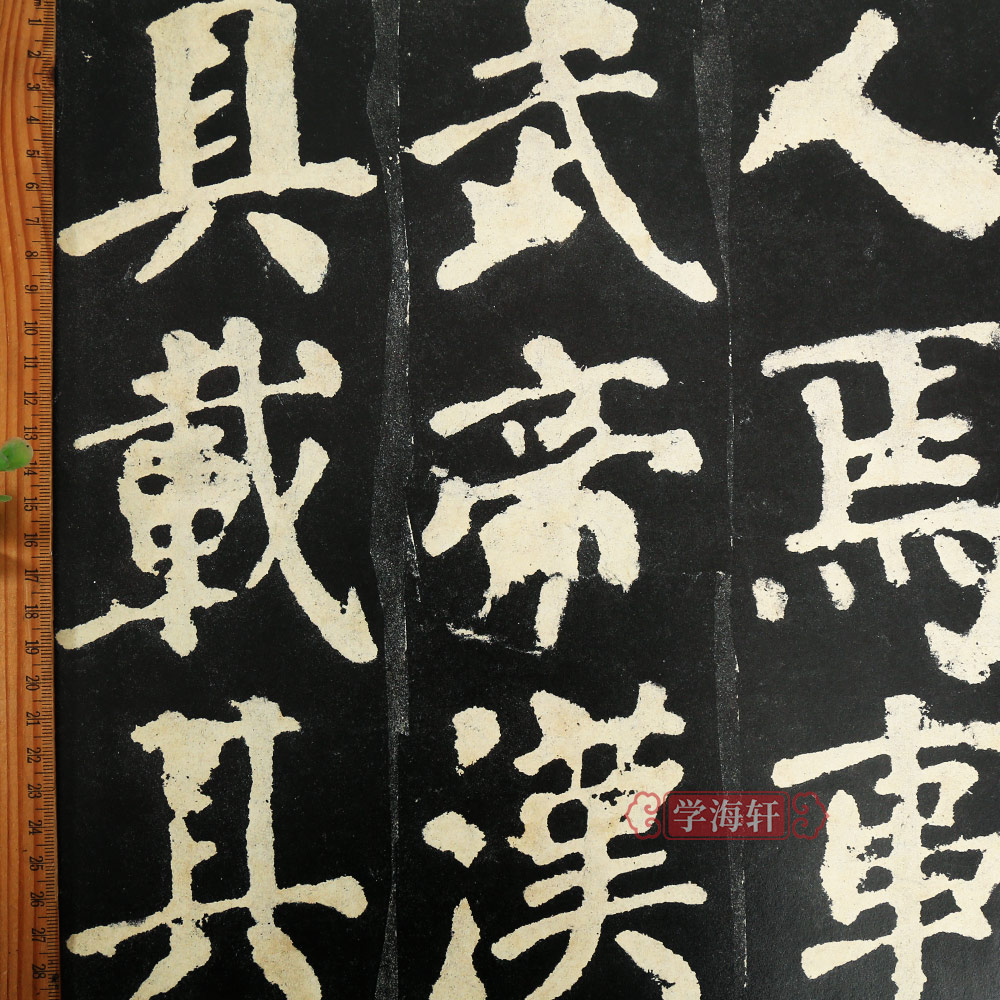 人焉事
武帝漢
具載其
学海轩
1
2
3
4
5
6
7
8
9
10
11
12
13
14
15
16
17
18
19
20
21
22
23
24
25
26
27
28